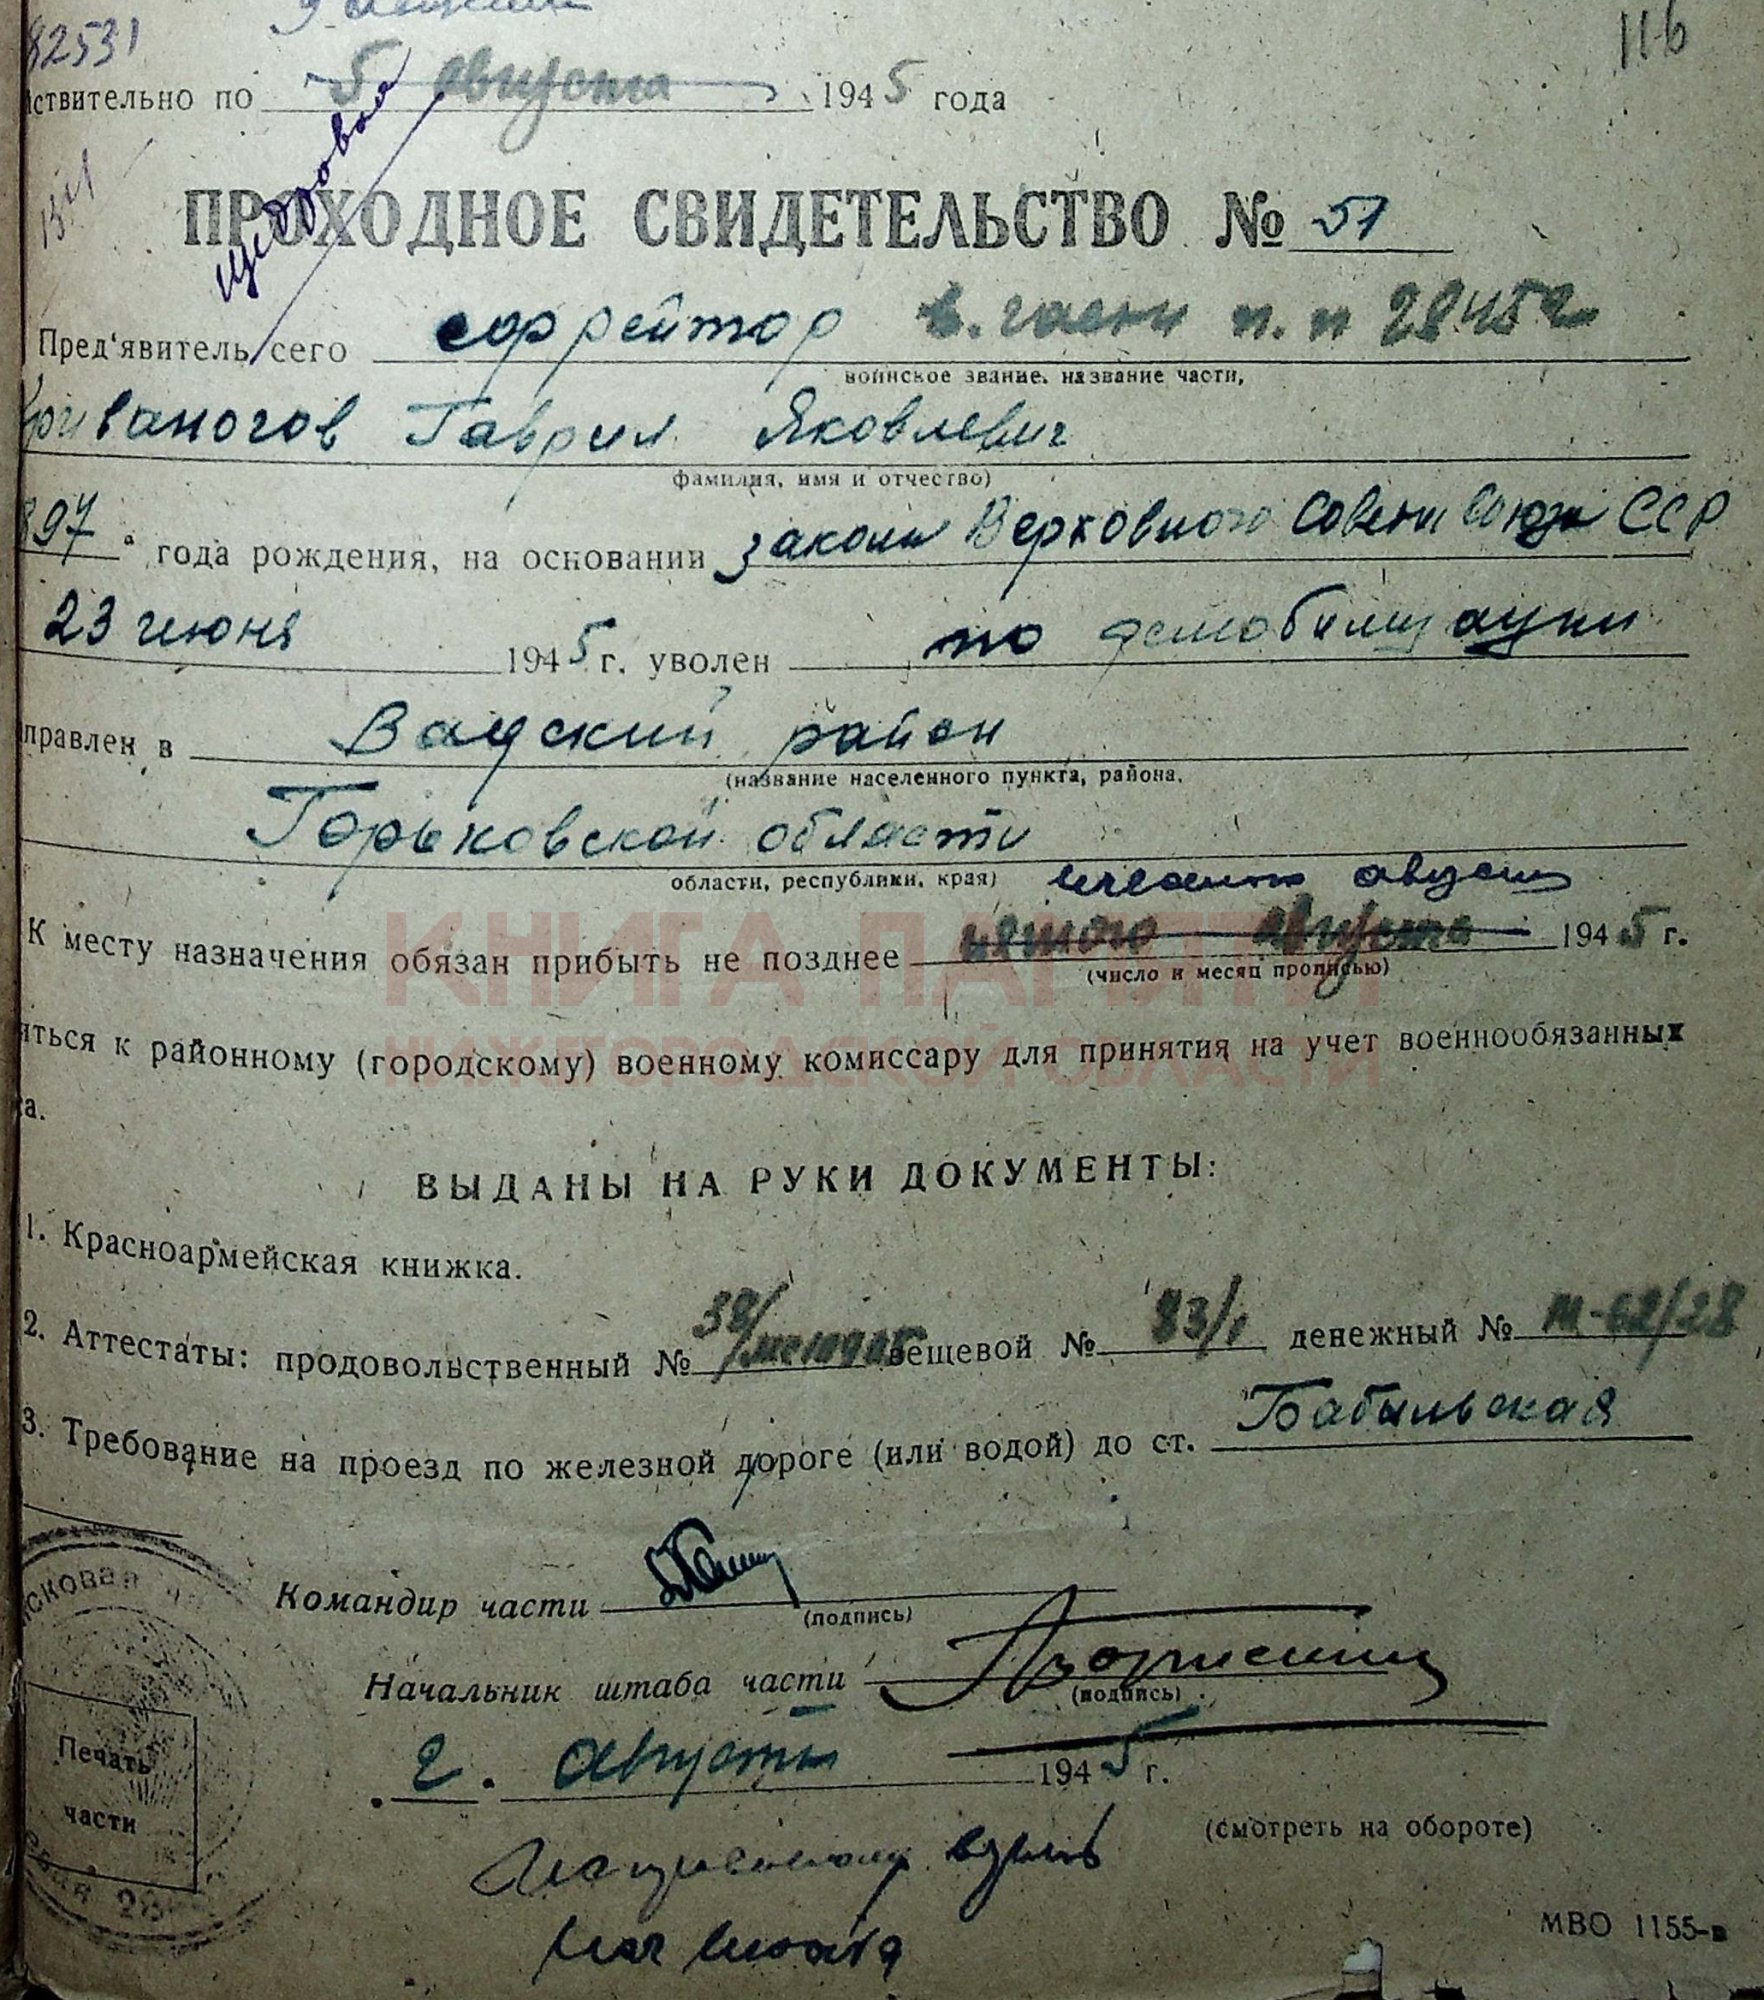 82531
116
йствительно по 5 августа 1945 года
ПРОХОДНОЕ СВИДЕТЕЛЬСТВО № 51
Пред'явитель сего ефрейтор в. части п. п 28452
воинское звание, название части,
Криваногов Гаврил Яковлевич
фамилия, имя и отчество)
897 года рождения, на основании закона Верховного Совета Союза ССР
23 июня 1945 г. уволен по демобилизации
правлен в Вадский район
(название населенного пункта, района,
Горьковской области
области, республики, края)
августа
К месту назначения обязан прибыть не позднее пятого августа 1945 г.
(число и месяц прописью)
иться к районному (городскому) военному комиссару для принятия на учет военнообязанных
са.
КНИГА ПАМЯТИ
НИЖЕГОРОДСКОЙ ОБЛАСТИ
ВЫДАНЫ НА РУКИ ДОКУМЕНТЫ:
1. Красноармейская книжка.
2. Аттестаты: продовольственный № 38/ вещевой № 83/1 денежный № М-62/28
3. Требование на проезд по железной дороге (или водой) до ст. Бабыльская
Командир части
(подпись)
Начальник штаба части
(подпись)
2. августа 1945 г.
Печать
части
(смотреть на обороте)
МВО 1155-в